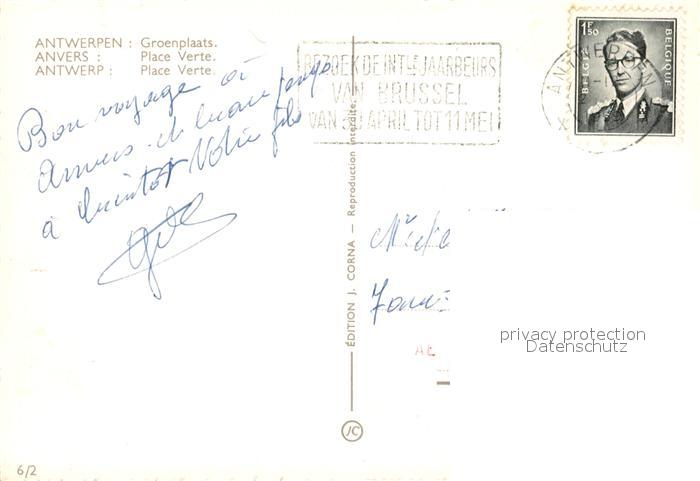 ANTWERPEN : Groenplaats.
ANVERS : Place Verte.
ANTWERP : Place Verte.
Bon voyage à
Anvers et beau temps
à bientôt Votre fils
BEZOEK DE INTLE JAARBEURS
VAN BRUSSEL
VAN 30 APRIL TOT 11 MEI
ANTWERPEN
1F50
BELGIE
BELGIQUE
ÉDITION J. CORNA — Reproduction interdite.
JC
privacy protection
Datenschutz
6/2